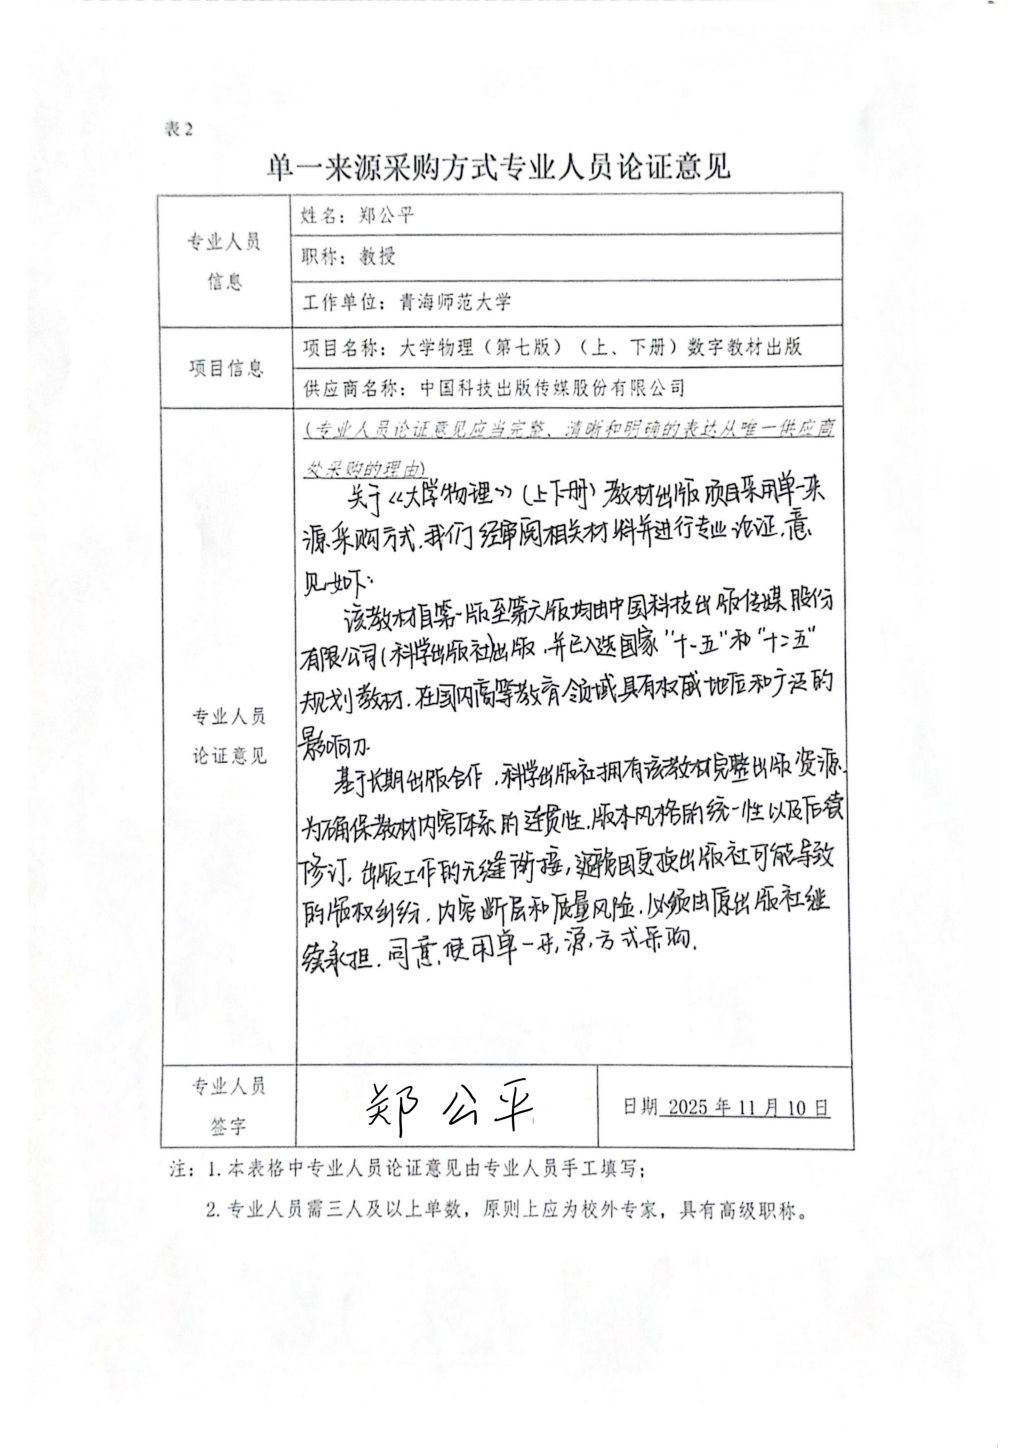 表2
单一来源采购方式专业人员论证意见
专业人员
信息
姓名：郑公平
职称：教授
工作单位：青海师范大学
项目信息
项目名称：大学物理（第七版）（上、下册）数字教材出版
供应商名称：中国科技出版传媒股份有限公司
专业人员
论证意见
(专业人员论证意见应当完整、清晰和明确的表达从唯一供应商
处采购的理由)
关于《大学物理》(上下册)教材出版项目采用单一来
源采购方式,我们经审阅相关材料并进行专业论证,意
见如下:
该教材自第一版至第六版均由中国科技出版传媒股份
有限公司(科学出版社)出版,并已入选国家"十一五"和"十二五"
规划教材.在国内高等教育领域具有权威地位和广泛的
影响力.
基于长期出版合作,科学出版社拥有该教材完整出版资源.
为确保教材内容体系的连贯性.版本风格的统一性以及后续
修订.出版工作的无缝衔接,避免因更换出版社可能导致
的版权纠纷.内容断层和质量风险.必须由原出版社继
续承担.同意使用单一来源方式采购.
专业人员
签字
郑公平
日期 2025年11月10日
注：1.本表格中专业人员论证意见由专业人员手工填写；
2.专业人员需三人及以上单数，原则上应为校外专家，具有高级职称。